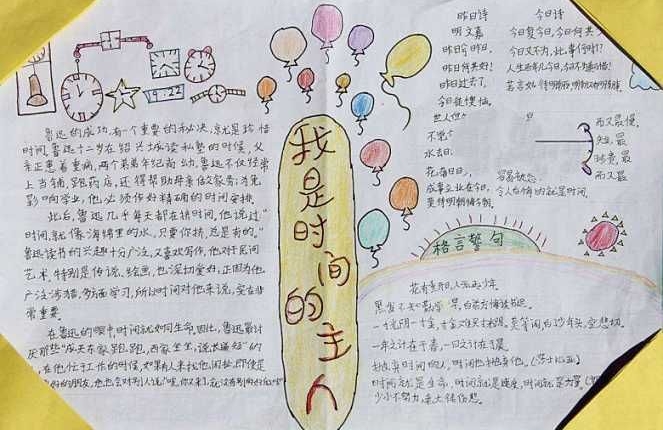 19:22
鲁迅的成功,有一个重要的秘决,就是珍惜
时间。鲁迅十二岁在绍兴城读私塾的时候,父
亲正患着重病,两个弟弟年纪尚幼,鲁迅不仅经常
上当铺,跑药店,还得帮助母亲做家务;为免
影响学业,他必须作好精确的时间安排。
此后,鲁迅几乎每天都在挤时间。他说过:“
时间,就像海绵里的水,只要你挤,总是有的。”
鲁迅读书的兴趣十分广泛,又喜欢写作,他对于民间
艺术,特别是传说、绘画,也深切爱好;正因为他
广泛涉猎,多方面学习,所以时间对他来说,实在非
常重要。
在鲁迅的眼中,时间就如同生命。因此,鲁迅最讨
厌那些“成天东家跑跑,西家坐坐,说长道短”的
,在他忙于工作的时候,如果有人来找他闲扯,即使是
的朋友,他也会对别人说:“唉,你又来了,就没有别的
我是时间的主人
昨日诗
明 文嘉
昨日兮昨日,
昨日何其好!
昨日过去了,
今日徒懊恼。
世人但
不觉
水去日,
花落日日,
成事立业在今日,
莫待明朝悔今朝。
今日诗
今日复今日,今日何其少
今日又不为,此事何时了?
人生百年几今日,今日不为真可惜!
若言姑待明朝至,明朝又有明朝事。
而又最慢,
短,最
珍贵,最
而又最
容易被忽
令人后悔的就是时间
格言警句
花有重开日,人无再少年
黑发不知勤学早,白首方悔读书迟。
一寸光阴一寸金,寸金难买寸光阴。莫等闲,白了少年头,空悲切。
一年之计在于春,一日之计在于晨
抛弃时间的人,时间也抛弃他。(莎士比亚)
时间就是生命,时间就是速度,时间就是力量。
少小不努力,老大徒伤悲。